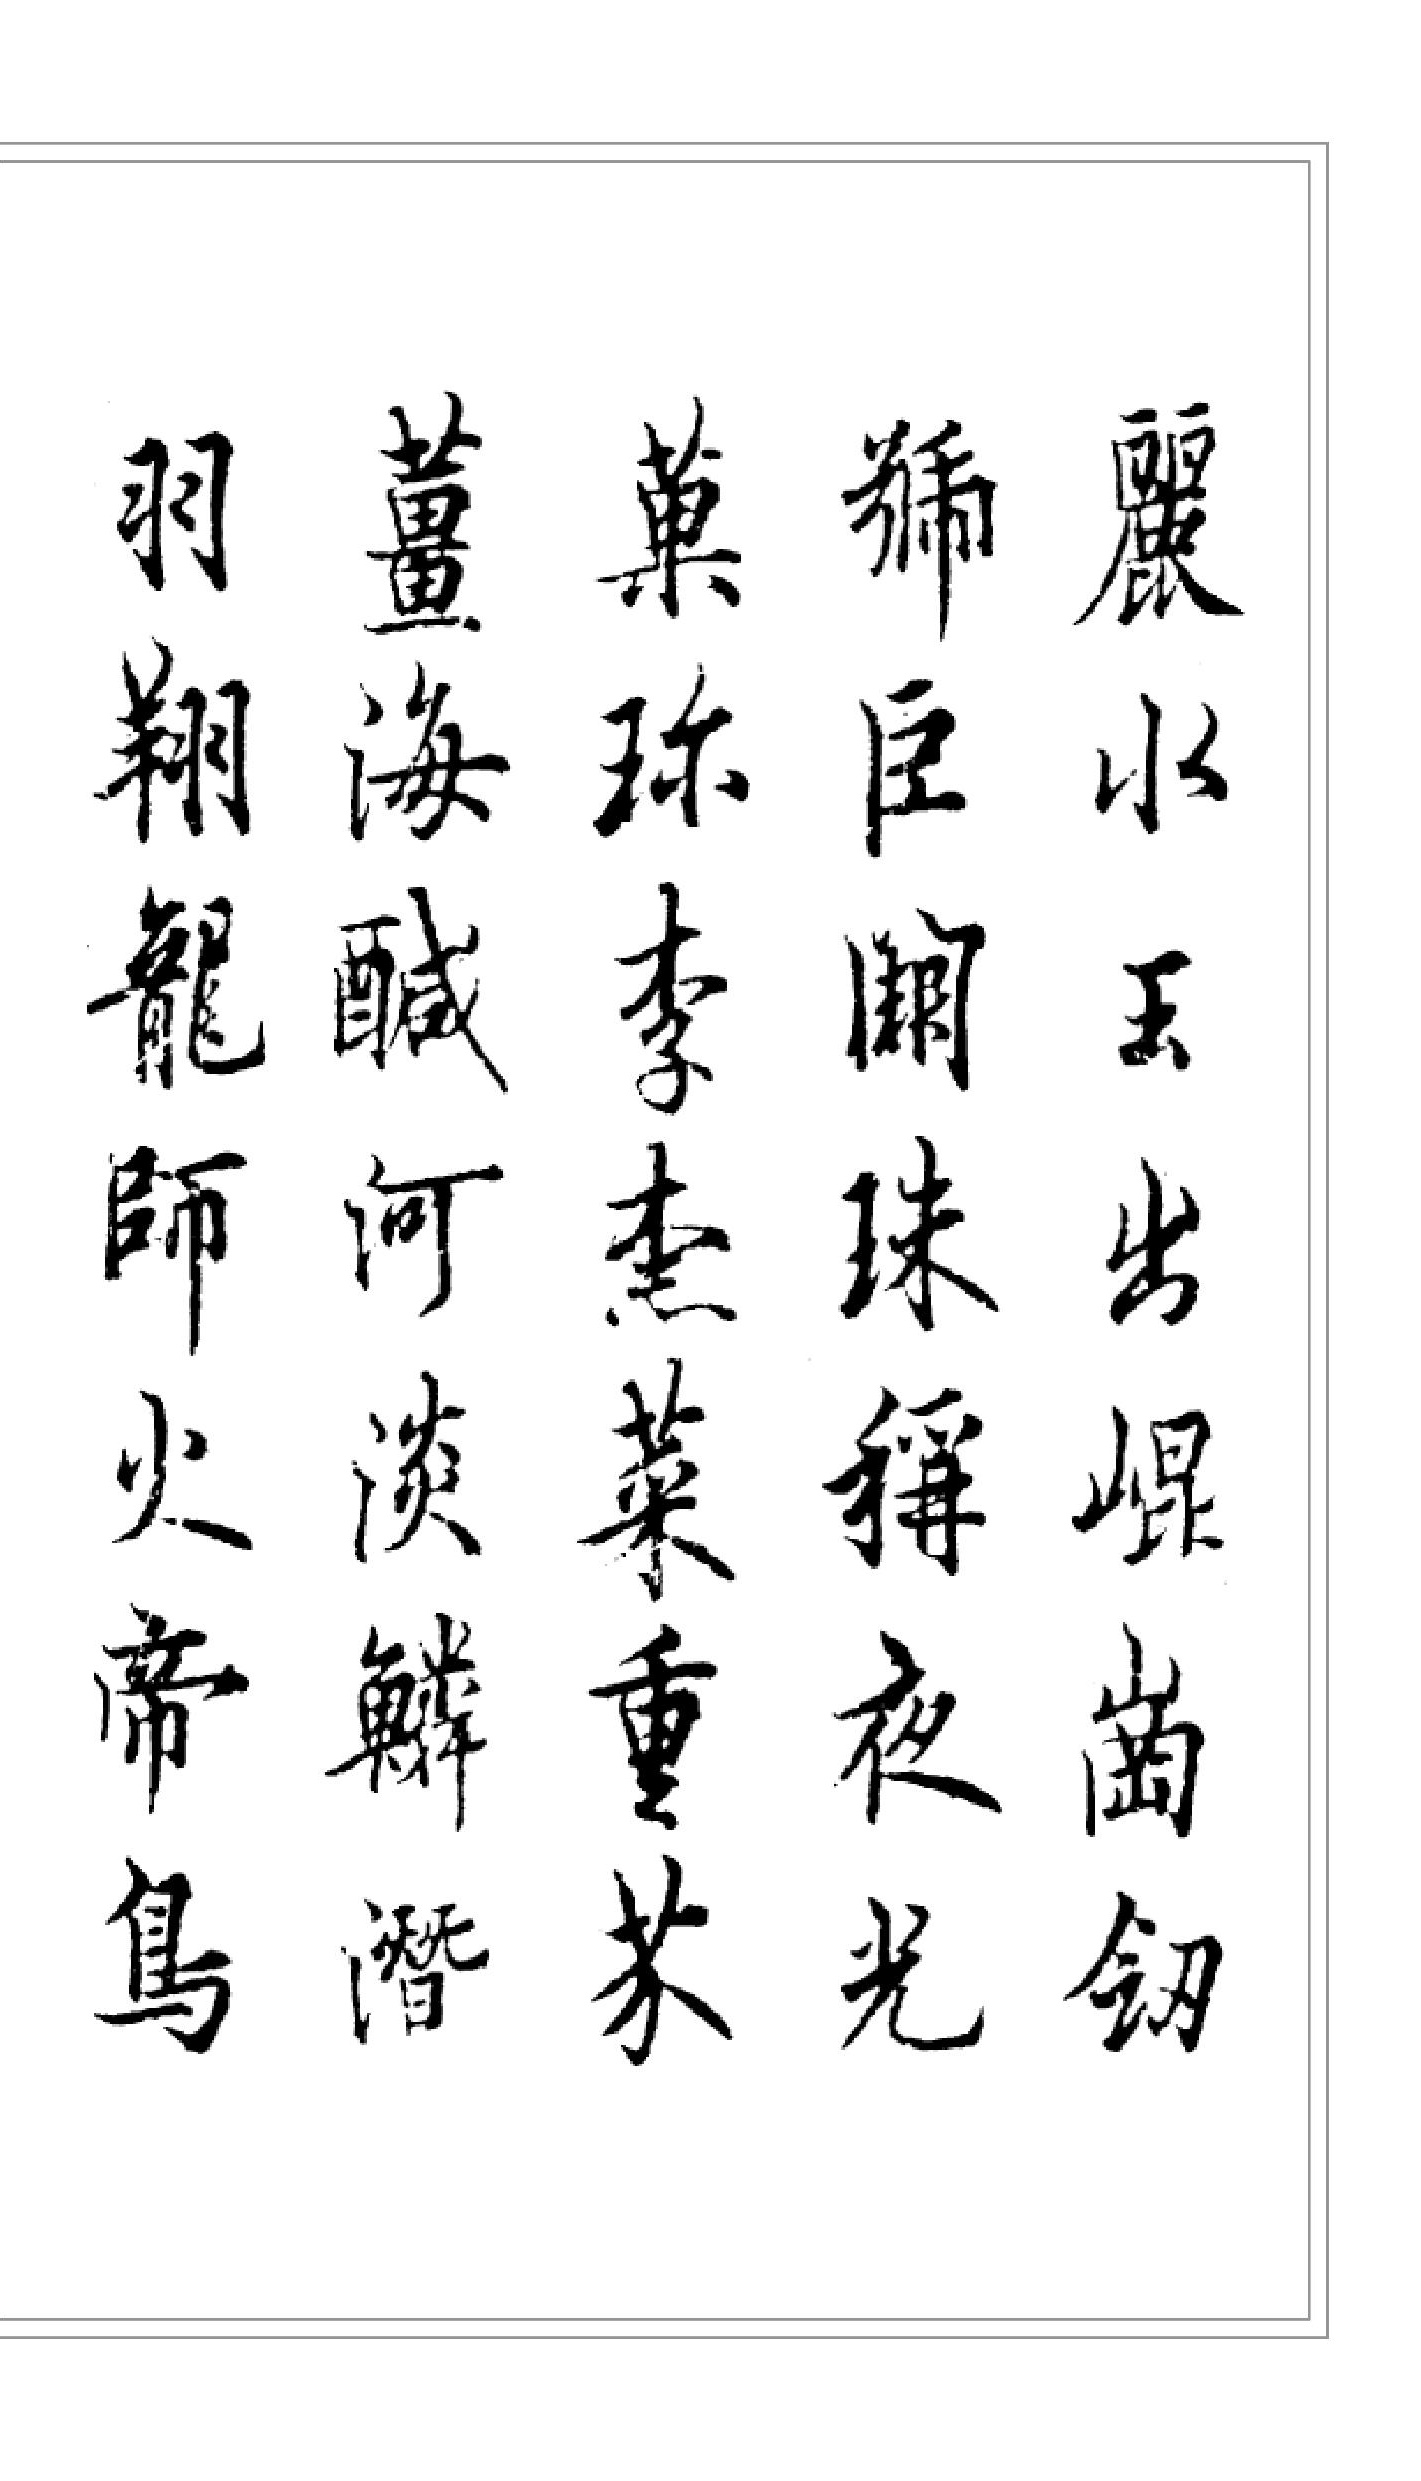 麗水玉出崐崗劒
號巨闕珠稱夜光
菓珎李柰菜重芥
薑海醎河淡鱗潛
羽翔龍師火帝鳥